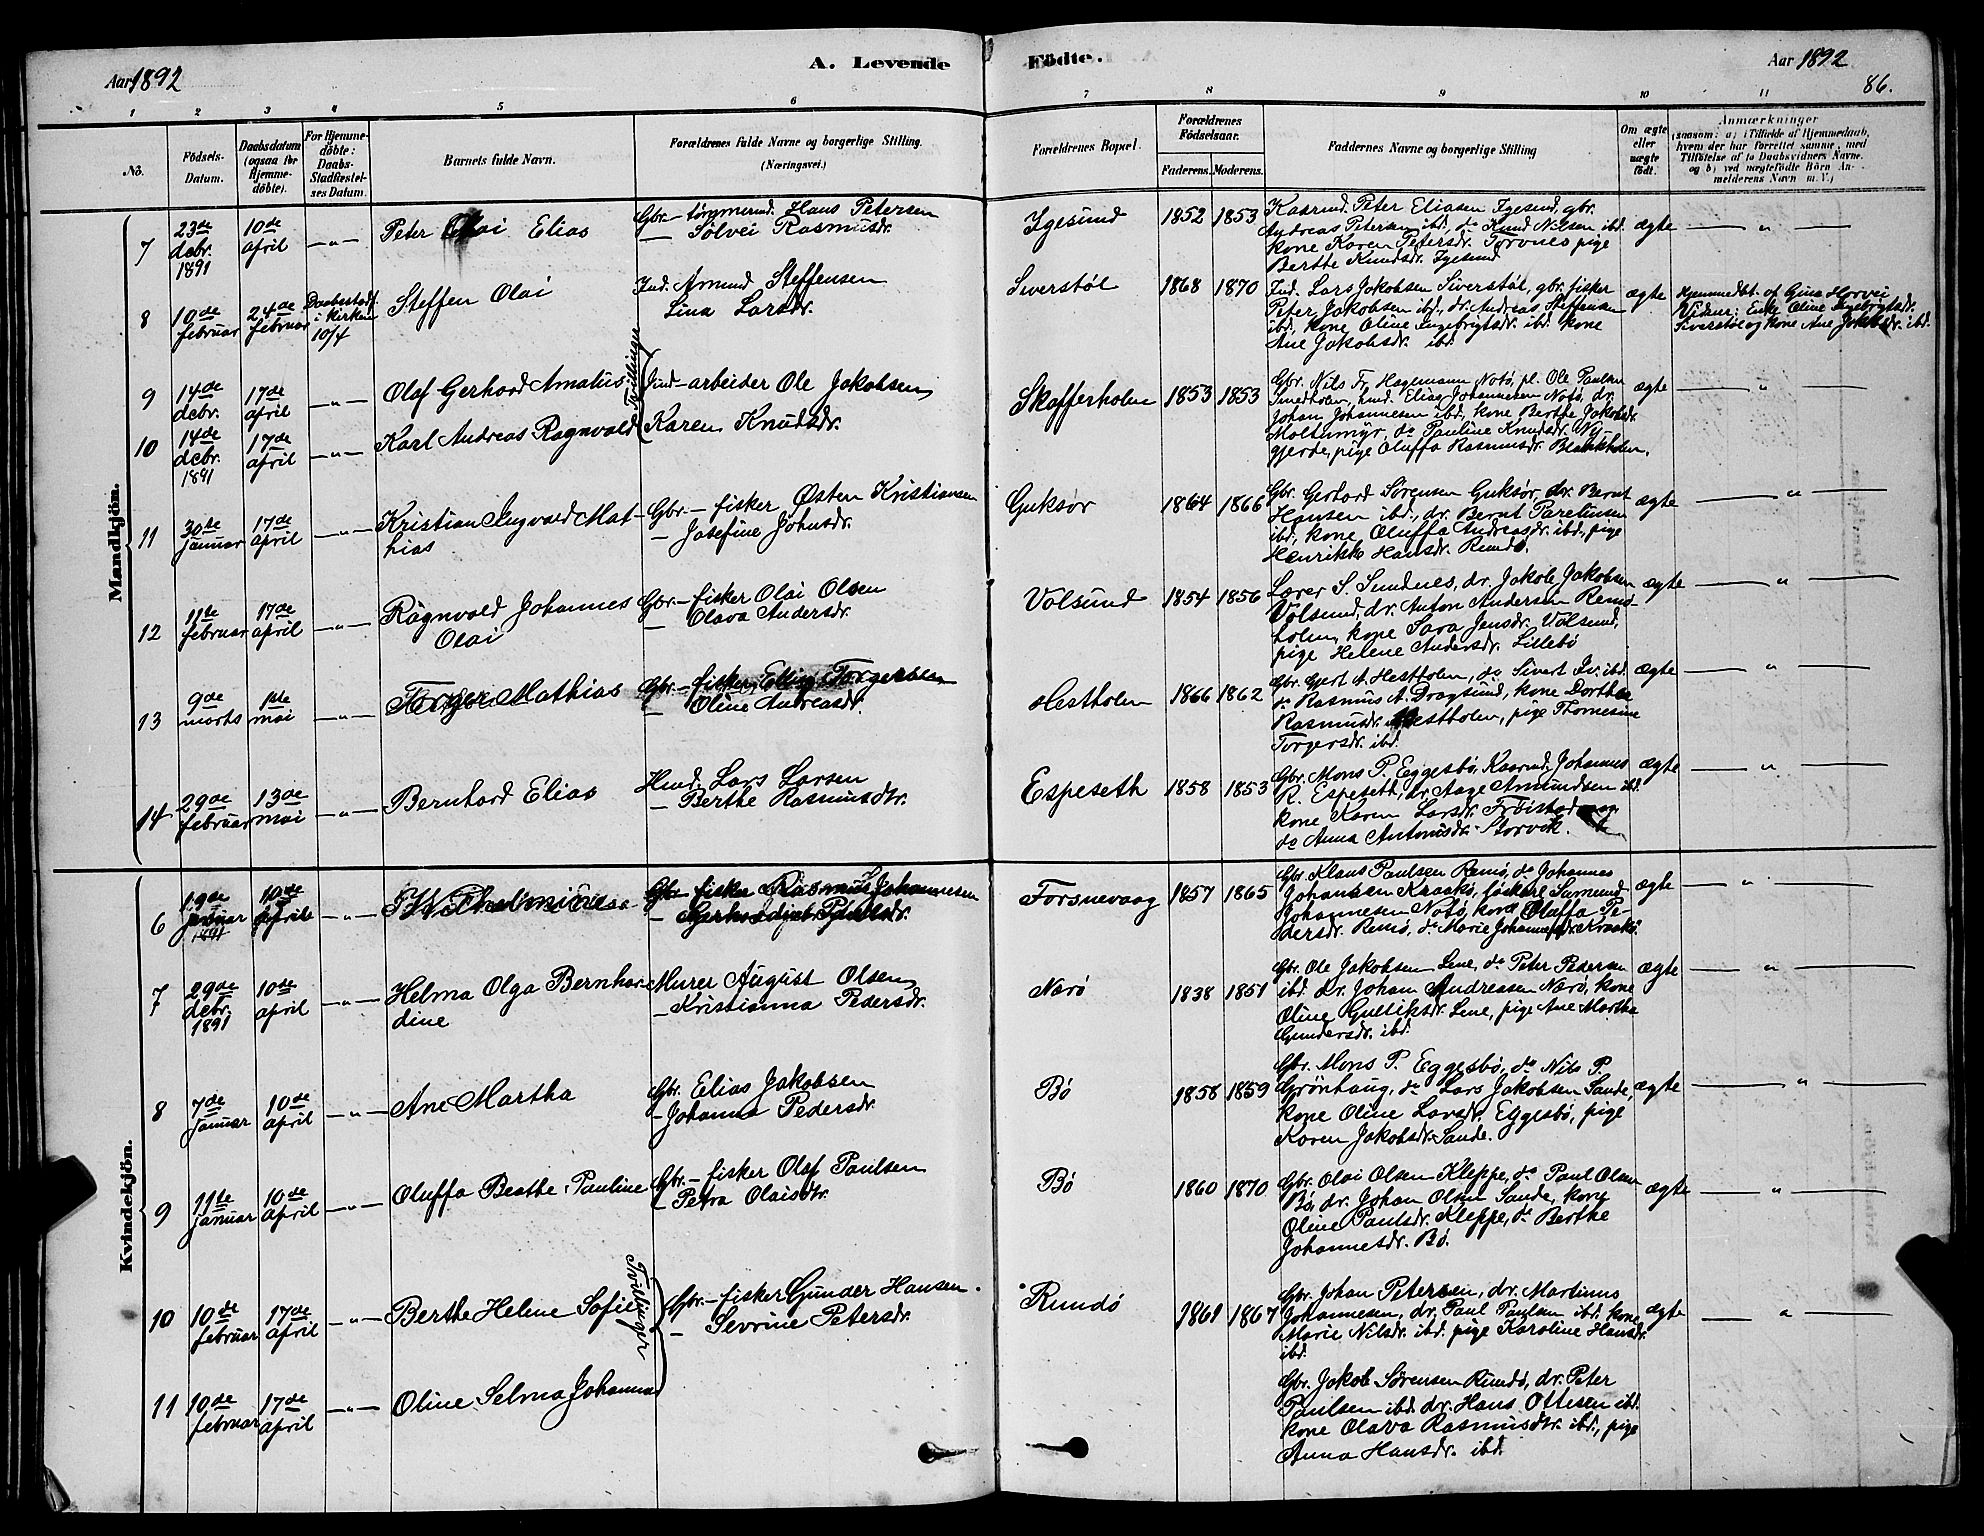 Aar 1892
A. Levende Födte.
Aar 1892
86.
1 2 3 4 5 6 7 8 9 10 11
No.
Födsels-
Datum.
Daabsdatum
(ogsaa for
Hjemme-
döbte).
For Hjemme-
döbte:
Daabs-
Stadfæstel-
ses Datum.
Barnets fulde Navn.
Forældrenes fulde Navne og borgerlige Stilling.
(Næringsvei.)
Forældrenes Bopæl.
Forældrenes
Födselsaar.
Faderens. Moderens.
Faddernes Navne og borgerlige Stilling
Om ægte
eller
uægte
født.
Anmærkninger
(saasom: a) i Tilfælde af Hjemmedaab,
hvem der har forrettet samme, med
Tilføielse af to Daabsvidners Navne.
og b) ved uægtefødte Börn An-
melderens Navn m. V.)
Mandkjön.
7
23de
decbr.
1891
10de
april
—„—
Peter Olai Elias
Gbr. - tømmermd. Hans Petersen
— Sølvei Rasmusdr.
Igesund
1852 1853
Kaarmd. Peter Eliasen Igesund, gbr.
Andreas Petersen ibd, do Knud Nilsen ibd.
kone Karen Petersdr. Torvnes pige
Berthe Knudsdr. Igesund
ægte
— „ —
8
10de
februar
24de
februar
Daabsstadf.
i kirken
10/4
Steffen Olai
Ind. Amund Steffensen
Lina Larsdr.
Siverstøl
1868 1870
Ind. Lars Jakobsen Siverstøl, gbr. fisker
Peter Jakobsen ibd., dr. Andreas Steffensen
ibd, kone Oline Ingebrigtsdr. ibd. kone
Ane Jakobsdr. ibd.
ægte
Hjemmedbt. af Gina Horvei
Vidner: Enke Oline Ingebrigtsdr.
Siverstøl og kone Ane Jakobsdr. ibd.
9
14de
decbr.
17de
april
—„—
Olaf Gerhard Amatus
Tvillinger
Ind-arbeider Ole Jakobsen
Karen Knudsdr.
Skafferholm
1853 1853
Gbr. Nils Fr. Hagemann Notø, pl. Ole Paulsen
Smedholen, hmd. Elias Johannesen Notø, dr.
Johan Johannesen ibd, kone Berthe Jakobsdr.
Moltumyr, do Pauline Knudsdr. Ny-
gjerde, pige Oluffa Rasmusdr. Blankholm.
ægte
— „ —
10
14de
decbr.
1891
17de
april
—„—
Karl Andreas Ragnvald
11
30te
januar
17de
april
—„—
Kristian Ingvald Mat-
hias
Gbr. - fisker Østen Kristiansen
— Josefine Johnsdr.
Guksør
1864 1866
Gbr. Gerhard Sørensen Guksør, dr. Bernt
Hansen ibd., dr. Bernt Paretinsen
ibd, kone Oluffa Andreasdr. ibd., pige
Henrikke Hansdr. Rundø.
ægte
— „ —
12
11te
februar
17de
april
—„—
Ragnvald Johannes
Olai
Gbr. - fisker Olai Olsen
— Olava Andersdr.
Volsund
1854 1856
Lærer S. Sundnes, dr. Jakob Jakobsen
Volsund, dr. Anton Andersen Remø-
holm, kone Sara Jensdr. Volsund,
pige Helene Andersdr. Lillebø
ægte
— „ —
13
9de
marts
1ste
mai
—„—
Torger Mathias
Gbr. - fisker Elling Torgersen
— Oline Andreasdr.
Hestholm
1866 1862
Gbr. Gjert A. Hestholm, do Sivert Iv. ibd.
do Rasmus A. Dragsund, kone Dorthea
Rasmusdr. Hestholm, pige Thomesine
Torgersdr. ibd.
ægte
— „ —
14
29de
februar
13de
mai
—„—
Bernhard Elias
Hmd. Lars Larsen
— Berthe Rasmusdtr.
Espeseth
1858 1853
Gbr. Mons P. Eggesbø, Kaarmd. Johannes
R. Espeseth, dr. Aage Amundsen ibd.
kone Karen Larsdr. Frøistad
do Anna Antonisdr. Storvik.
ægte
— „ —
Kvindekjön.
6
19de
januar
1891
10de
april
—„—
Gbr. - fisker Rasmus Johannesen
Forsnevaag
1857 1865
Gbr. Klaus Paulsen Remø, do Johannes
Johansen Kraakø, løskar Samund
Johannesen Notø, kone Oluffa Pe-
dersdr. Remø, do Marie Johannesdr. Kraakø.
ægte
— „ —
7
29de
decbr.
1891
10de
april
—„—
Helma Olga Bernhar-
dine
Murer August Olsen
— Kristianna Pedersdr.
Narø
1838 1851
Gbr. Ole Jakobsen Lene, do Peter Pedersen
ibd. Dr. Johan Andreasen Narø, kone
Oline Gultiksdr. Lene, pige Ane Martha
Gundersdr. ibd.
ægte
— „ —
8
7de
januar
10de
april
—„—
Ane Martha
Gbr. Elias Jakobsen
— Johanna Pedersdr.
Bø
1858 1859
Gbr. Mons P. Eggesbø, do Nils P.
Grönhaug, do Lars Jakobsen Sande,
kone Oline Larsdr. Eggesbø, pige
Karen Jakobsdr. Sande.
ægte
— „ —
9
11te
januar
10de
april
—„—
Oluffa Beathe Pauline
Gbr. - fisker Olaf Paulsen
— Petra Olaisdtr.
Bø
1860 1870
Gbr. Olai Olsen Kleppe, do Paul Olsen
Bø, dr. Johan Olsen Sande, kone
Oline Paulsdr. Kleppe, do Berthe
Johannesdr. Bø.
ægte
— „ —
10
10de
februar
17de
april
—„—
Berthe Helene Sofie
Tvillinger
Gbr. - fisker Gunder Hansen
— Sevrine Petersdr.
Rundø
1861 1867
Gbr. Johan Petersen, dr. Martinus
Johannesen, dr. Paul Paulsen ibd. kone
Marie Nilsdr. ibd. pige Karoline Hansdr.
ibd.
ægte
— „ —
11
10de
februar
17de
april
—„—
Oline Selma Johanna
Gbr. Jakob Sørensen Rundø, dr. Peter
Paulsen ibd. dr. Hans Ottesen ibd.
kone Olava Rasmusdtr. ibd., pige
Anna Hansdr. ibd.